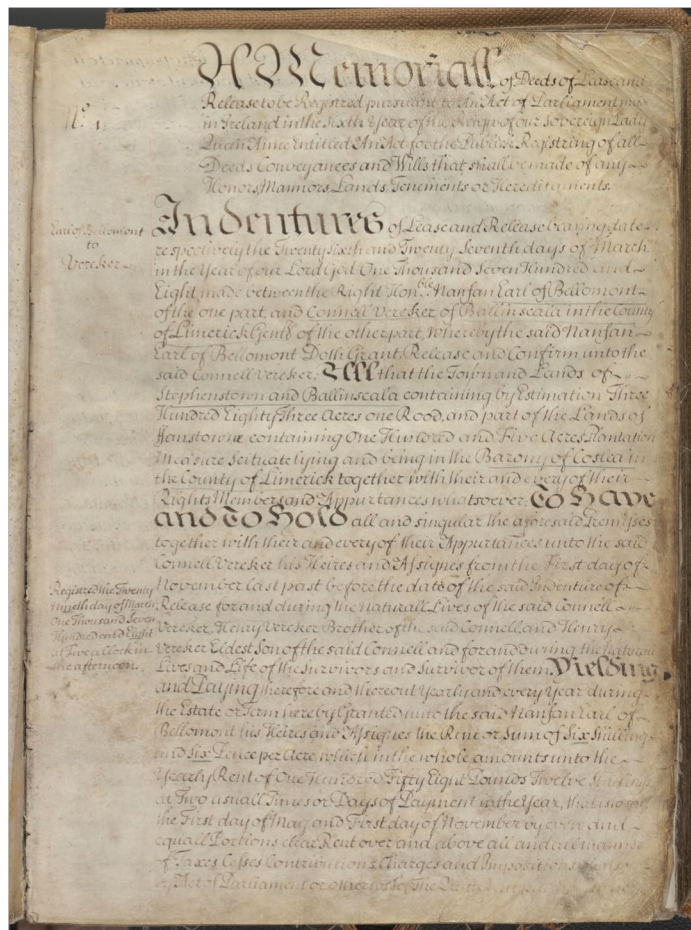 A Memoriall of Deeds of Lease and
Release to be Registred pursuant to An Act of Parliament
in Ireland in the Sixth Year of the Reign of our Sovereign Lady
Queen Anne Entitled An Act for the Publick Registring of all
Deeds Conveyances and Wills that shall be made of any
Honors Mannors Lands Tenements or Hereditaments.
No. 1
Earl of Bellomont
to
Vereker
Indentures of Lease and Release bearing date
respectively the Twenty Sixth and Twenty Seventh days of March
in the Year of our Lord God One Thousand Seven Hundred and
Eight made between the Right Hon.ble Nanfan Earl of Bellomont
of the one part, and Connell Vereker of Ballinscala in the County
of Limerick Gent. of the other part, Whereby the said Nanfan
Earl of Bellomont Doth Grant Release and Confirm unto the
said Connell Vereker, All that the Town and Lands of
Stephenstown and Ballinscala containing by Estimation Three
Hundred Eighty Three Acres one Rood, and part of the Lands of
containing One Hundred and Five Acres Plantation
Measure Scituate lying and being in the Barony of Coslea in
the County of Limerick together with their and every of their
Rights Members and Appurtances whatsoever, To Have
and To Hold all and singular the aforesaid Premisses
together with their and every of their Appurtances unto the said
Connell Vereker his Heires and Assignes from the First day of
November last past before the date of the said Indenture of
Release for and during the Naturall Lives of the said Connell
Vereker, Henry Vereker Brother of the said Connell and Henry
Vereker Eldest Son of the said Connell and for and during the Naturall
Lives and Life of the Survivors and Survivor of them, Yielding
and Paying therefore and thereout Yearly and every Year during
the Estate or Term hereby Granted unto the said Nanfan Earl of
Bellomont his Heires and Assignes the Rent or Sum of Six Shillings
and Six Pence per Acre which in the whole amounts unto the
Yearly Rent of One Hundred Fifty Eight Pounds Twelve Shillings
at Two usuall Times or Days of Payment in the Year, that is to say
the First day of May and First day of November by even and
equall Portions clear Rent over and above all and all manner
of Taxes Cesses Contributions Charges and Impositions
Act of Parliament or otherwise
Registred the Twenty
nineth day of March
One Thousand Seven
Hundred and Eight
at Two a Clock in
the afternoon.